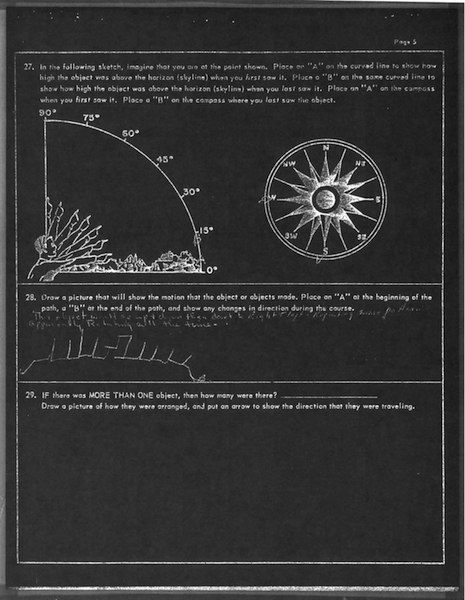 Page 5
27. In the following sketch, imagine that you are at the point shown. Place an "A" on the curved line to show how
high the object was above the horizon (skyline) when you first saw it. Place a "B" on the same curved line to
show how high the object was above the horizon (skyline) when you last saw it. Place an "A" on the compass
when you first saw it. Place a "B" on the compass where you last saw the object.
90°
75°
60°
45°
30°
15°
0°
N
NW
NE
W
E
SW
SE
S
28. Draw a picture that will show the motion that the object or objects made. Place an "A" at the beginning of the
path, a "B" at the end of the path, and show any changes in direction during the course.
This object would go up & down then dart to Right & left - Repeating
apparently Rotating all the time
29. IF there was MORE THAN ONE object, then how many were there?
Draw a picture of how they were arranged, and put an arrow to show the direction that they were traveling.